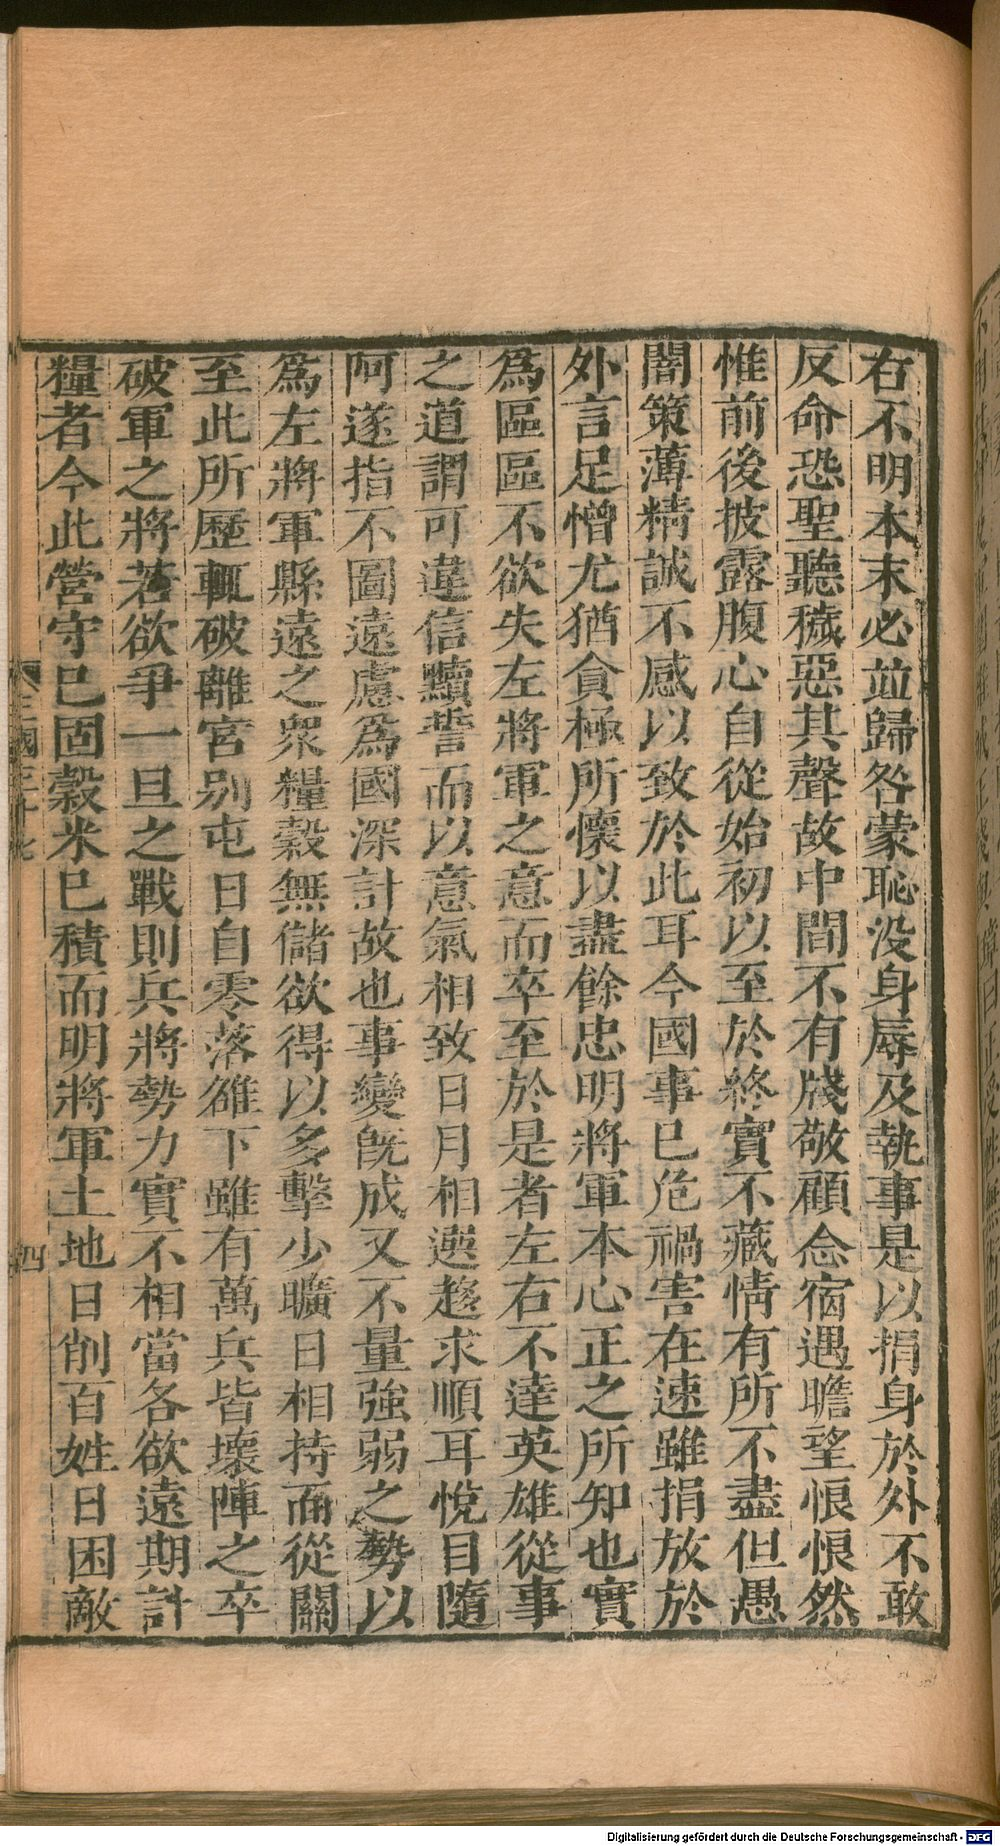 右不明本末必並歸咎蒙恥没身辱及執事是以捐身於外不敢
反命恐聖聽穢惡其聲故中間不有牋敬顧念宿遇瞻望悢悢然
惟前後披露腹心自從始初以至於終實不藏情有所不盡但愚
闇策薄精誠不感以致於此耳今國事已危禍害在速雖捐放於
外言足憎尤猶貪極所懷以盡餘忠明將軍本心正之所知也實
爲區區不欲失左將軍之意而卒至於是者左右不達英雄從事
之道謂可違信黷誓而以意氣相致日月相遷趨求順耳悅目隨
阿遂指不圖遠慮爲國深計故也事變既成又不量強弱之勢以
爲左將軍縣遠之衆糧穀無儲欲得以多擊少曠日相持而從關
至此所歷輒破離宮别屯日自零落雒下雖有萬兵皆壞陣之卒
破軍之將若欲爭一旦之戰則兵將勢力實不相當各欲遠期計
糧者今此營守已固穀米已積而明將軍土地日削百姓日困敵
三國三十七 四
Digitalisierung gefördert durch die Deutsche Forschungsgemeinschaft - DFG